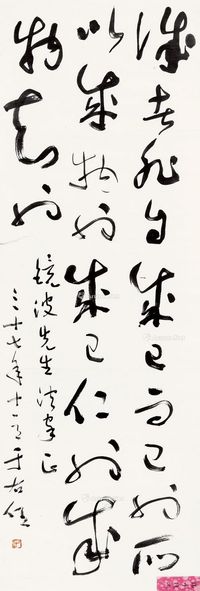 誠者非自成己而已也所
以成物也成己仁也成
物知也
鏡波先生法家正
三十七年十 于右任